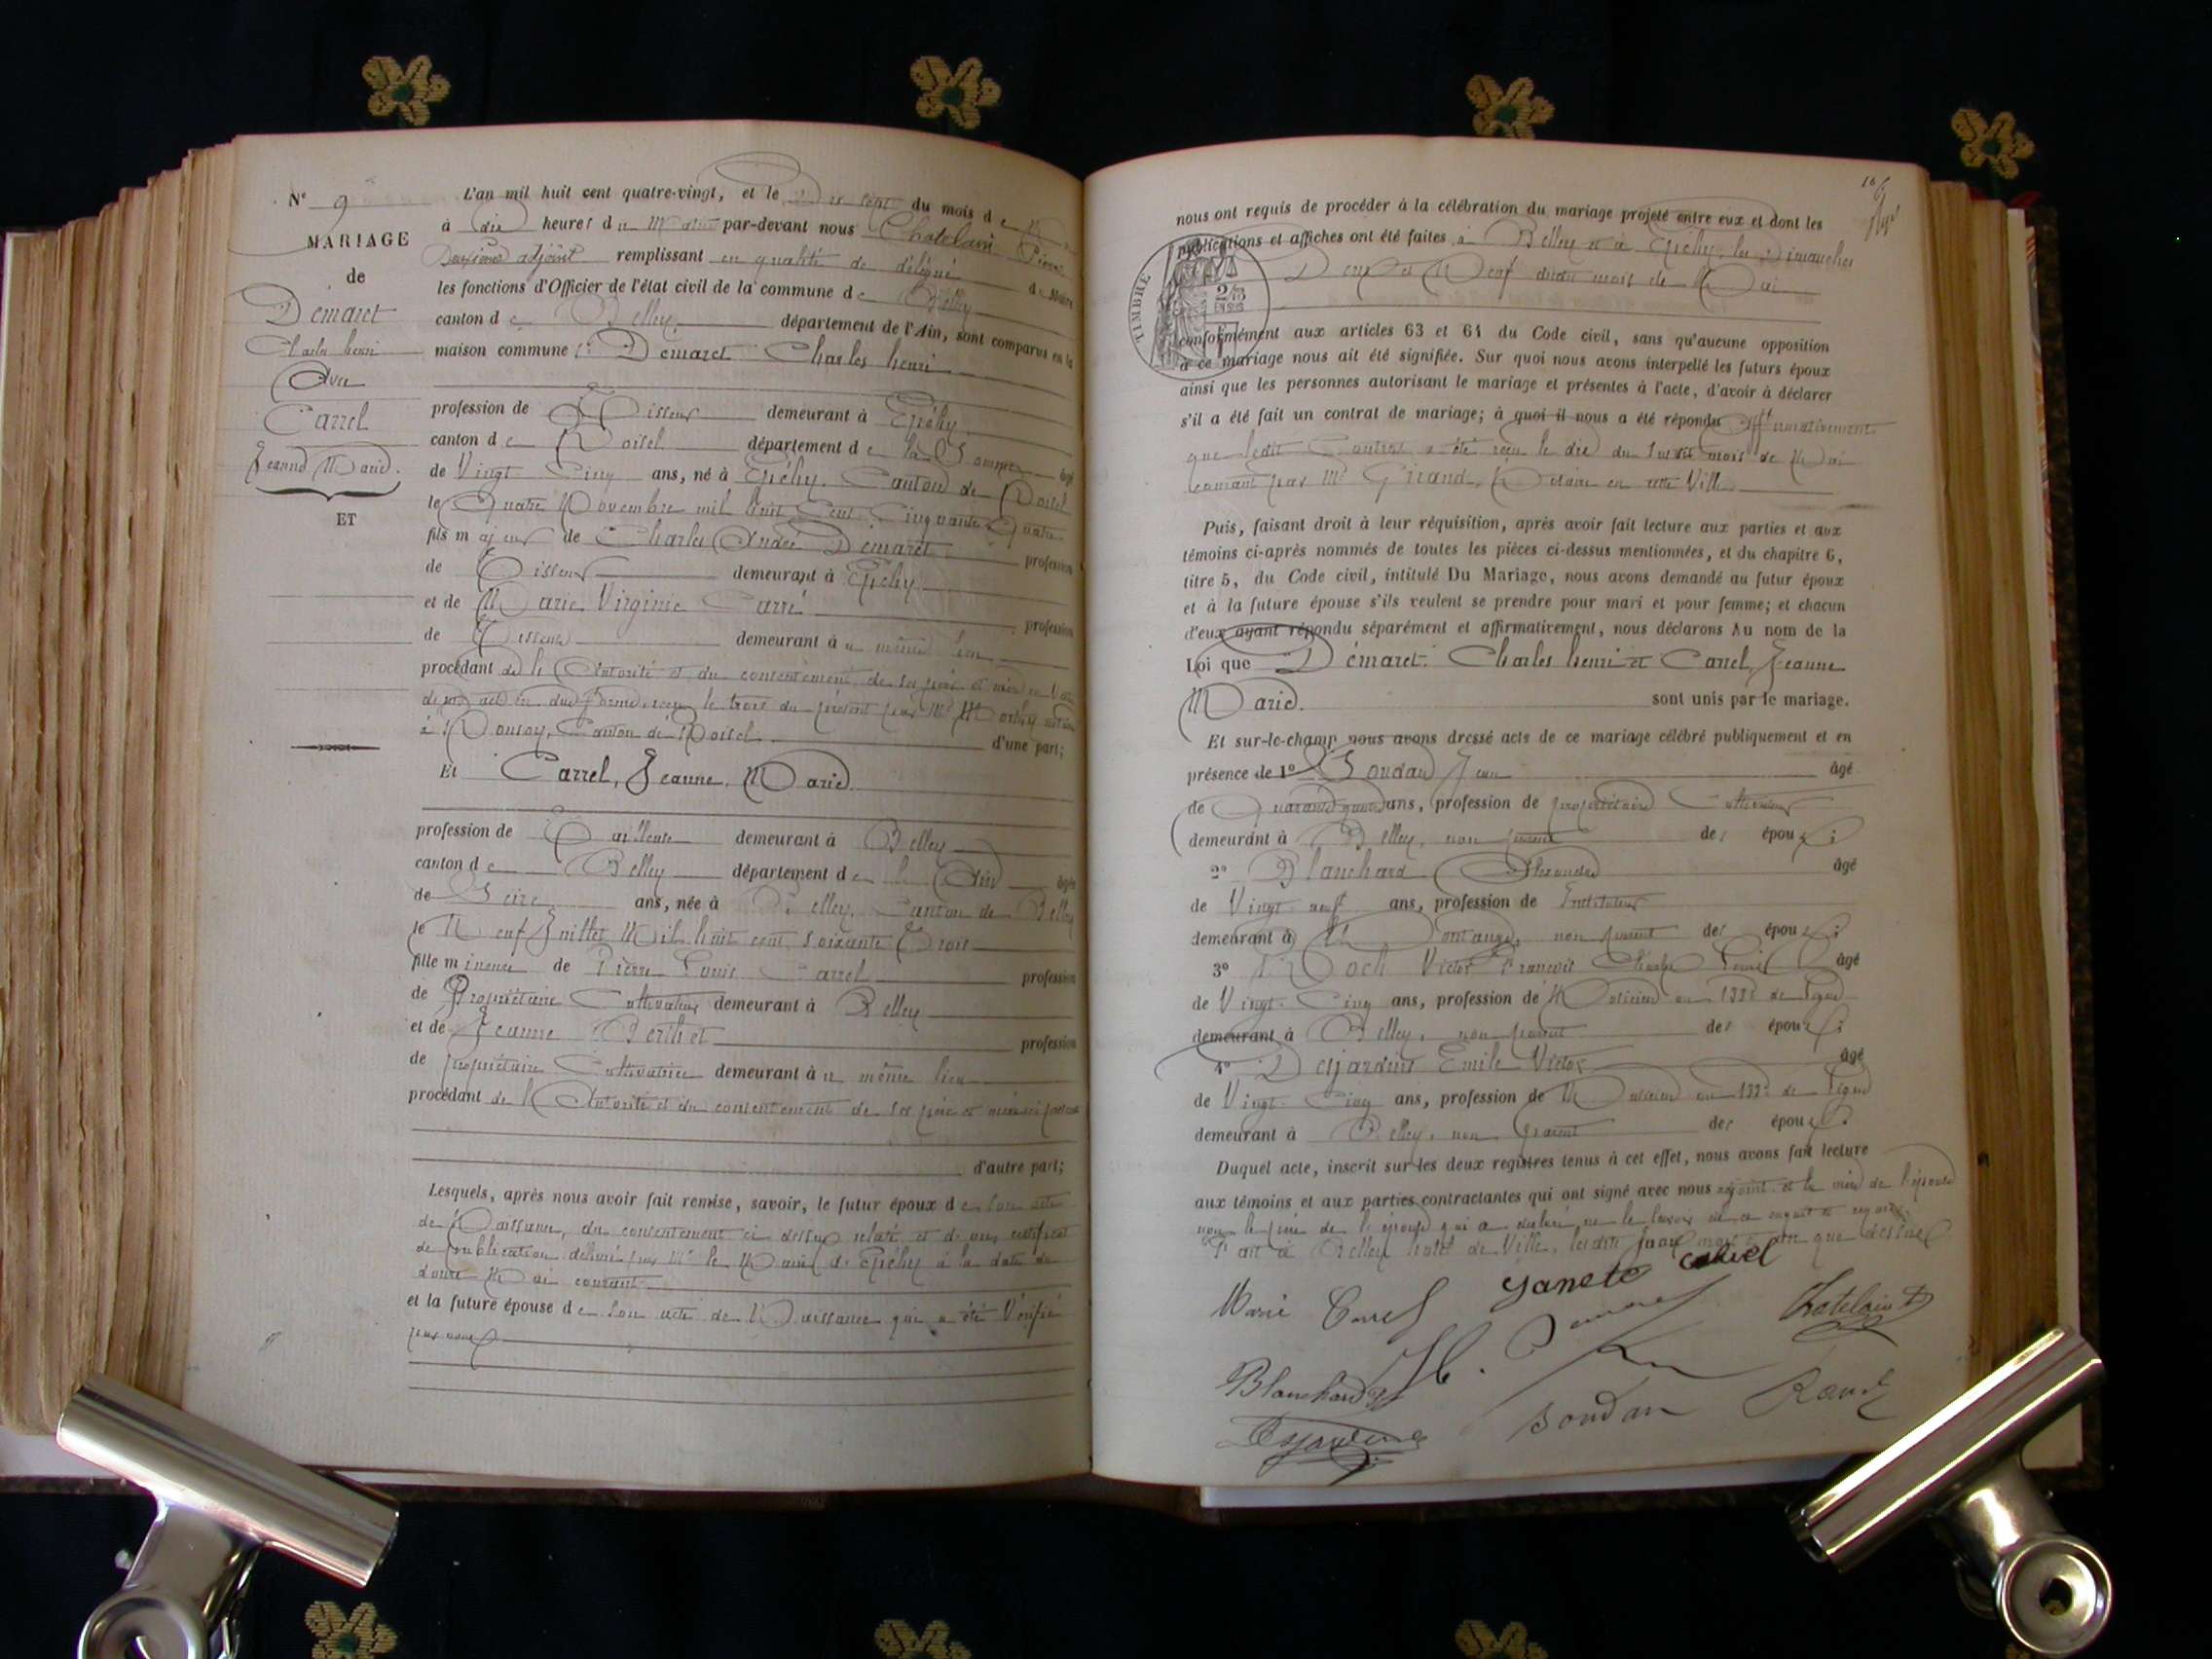 N° 9
MARIAGE
de
Demaret
Charles henri
Avec
Carrel
Jeanne Marie.
ET
L'an mil huit cent quatre-vingt, et le Dix sept du mois de
à dix heures du Matin par-devant nous Chatelain Pierre
Deuxième adjoint remplissant en qualité de délégué du Maire
les fonctions d'Officier de l'état civil de la commune de Belley
canton de Belley département de l'Ain, sont comparus en la
maison commune 1° Demaret Charles henri
profession de Tisseur demeurant à Epéhy
canton de Roisel département de la Somme âgé
de Vingt Cinq ans, né à Epéhy. Canton de Roisel
le Quatre Novembre mil huit Cent Cinquante Quatre
fils majeur de Charles André Demaret profession
de Tisseur demeurant à Epéhy
et de Marie Virginie Carré profession
de Tisseuse demeurant au même lieu
procédant de l'Autorité et du consentement de ses père et mère en
acte en due forme, reçu le trois du présent par Me notaire
à Ronsoy, Canton de Roisel d'une part;
Et Carrel, Jeanne Marie.
profession de Tailleuse demeurant à Belley
canton de Belley département de l'Ain âgée
de Seize ans, née à Belley, Canton de Belley
le Neuf Juillet Mil huit cent soixante Trois
fille mineure de Pierre Louis Carrel profession
de Propriétaire Cultivateur demeurant à Belley
et de Jeanne Berthet profession
de propriétaire Cultivatrice demeurant au même lieu
procédant de l'Autorité et du consentement de ses père et mère ici présents
d'autre part;
Lesquels, après nous avoir fait remise, savoir, le futur époux de son acte
de Naissance, du consentement ci dessus relaté et d'un certificat
de publication délivré par Mr le Maire d'Epéhy à la date du
douze Mai courant
et la future épouse de son acte de Naissance qui a été Vérifié
par nous
16
nous ont requis de procéder à la célébration du mariage projeté entre eux et dont les
publications et affiches ont été faites à Belley et à Epéhy, les Dimanches
Deux et Neuf dudit mois de Mai
TIMBRE
conformément aux articles 63 et 64 du Code civil, sans qu'aucune opposition
à ce mariage nous ait été signifiée. Sur quoi nous avons interpellé les futurs époux
ainsi que les personnes autorisant le mariage et présentes à l'acte, d'avoir à déclarer
s'il a été fait un contrat de mariage; à quoi il nous a été répondu Affirmativement
que ledit Contrat a été reçu le dix du susdit mois de Mai
courant par Me Girand, Notaire en cette Ville
Puis, faisant droit à leur réquisition, après avoir fait lecture aux parties et aux
témoins ci-après nommés de toutes les pièces ci-dessus mentionnées, et du chapitre 6,
titre 5, du Code civil, intitulé Du Mariage, nous avons demandé au futur époux
et à la future épouse s'ils veulent se prendre pour mari et pour femme; et chacun
d'eux ayant répondu séparément et affirmativement, nous déclarons Au nom de la
Loi que Démaret Charles henri et Carrel, Jeanne
Marie. sont unis par le mariage.
Et sur-le-champ nous avons dressé acte de ce mariage célébré publiquement et en
présence de 1° Soudan Jean âgé
de Quarante quatre ans, profession de propriétaire Cultivateur
demeurant à Belley, non parent des époux;
2° Blanchard Alexandre âgé
de Vingt neuf ans, profession de Instituteur
demeurant à non parent des époux;
3° Victor François Louis âgé
de Vingt Cinq ans, profession de Musicien au 133e de Ligne
demeurant à Belley, non parent des époux;
4° Dejardins Emile Victor âgé
de Vingt Cinq ans, profession de Musicien au 133e de Ligne
demeurant à Belley, non parent des époux.
Duquel acte, inscrit sur les deux registres tenus à cet effet, nous avons fait lecture
aux témoins et aux parties contractantes qui ont signé avec nous adjoint et la mère de l'épouse
non le père de l'épouse qui a déclaré ne le savoir de ce enquis et requis.
Fait à Belley hotel de Ville, lesdits jour mois et an que dessus
Marie Carrel
Janete Carrel
Chatelain
Blanchard
Soudan